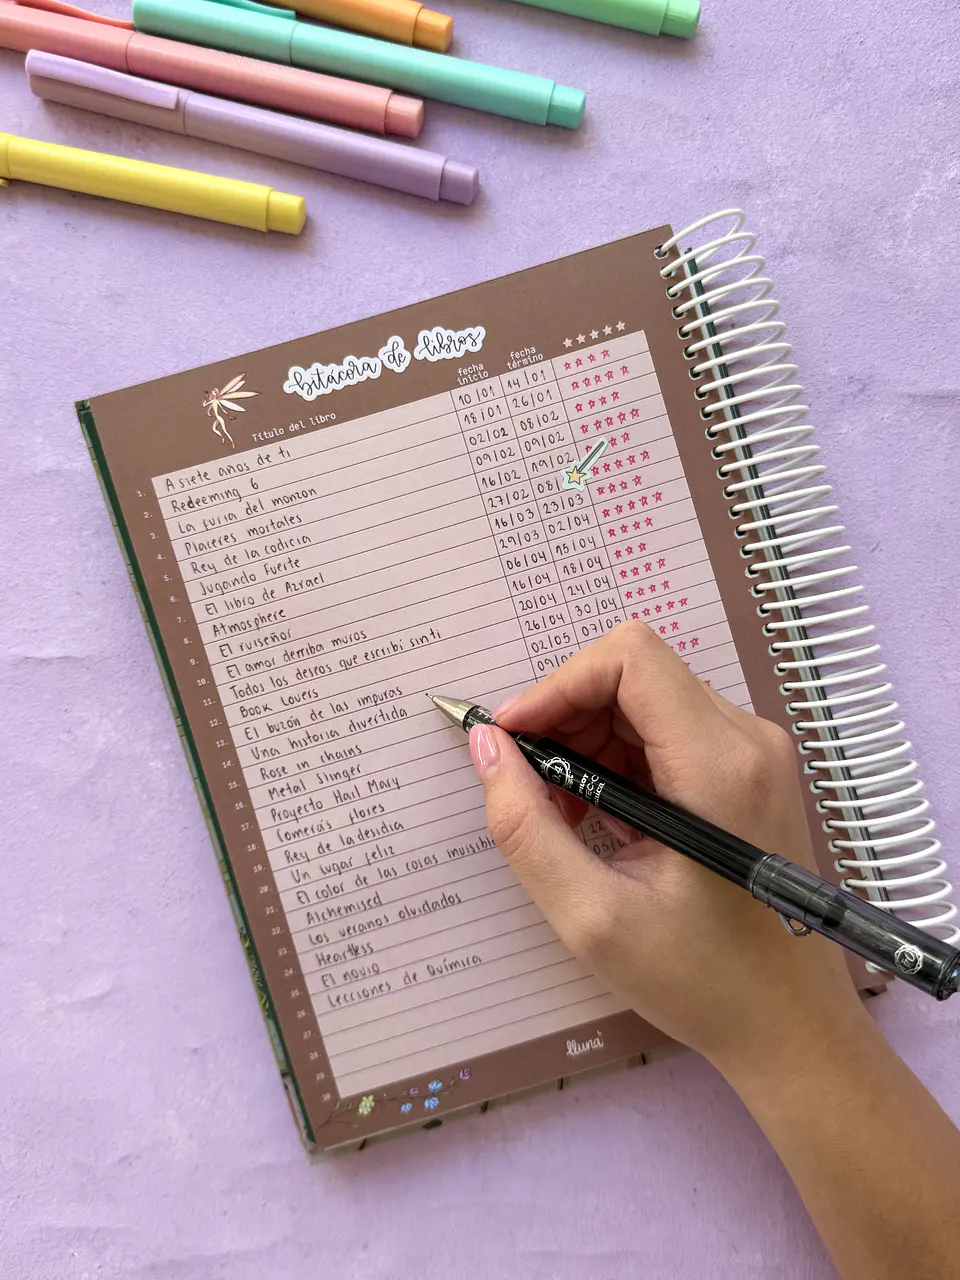 bitácora de libros
Título del libro fecha inicio fecha término
1. A siete años de ti 10/01 14/01
2. Redeeming 6 18/01 26/01
3. La furia del monzon 02/02 08/02
4. Placeres mortales 09/02 09/02
5. Rey de la codicia 16/02 19/02
6. Jugando fuerte 27/02 08/
7. El libro de Azrael 16/03 23/03
8. Atmosphere 29/03 02/04
9. El ruiseñor 06/04 15/04
10. El amor derriba muros 16/04 18/04
11. Todos los deseos que escribí sin ti 20/04 24/04
12. Book Lovers 26/04 30/04
13. El buzón de las impuras 02/05 07/05
14. Una historia divertida 09/05
15. Rose in chains
16. Metal Slinger
17. Proyecto Hail Mary
18. Comerás flores
19. Rey de la desidia
20. Un lugar feliz
21. El color de las cosas invisible 22
22. Alchemised 05/
23. Los veranos olvidados
24. Heartless
25. El novio
26. Lecciones de Química
27.
28.
29.
30.
lluna
0.4 PILOT